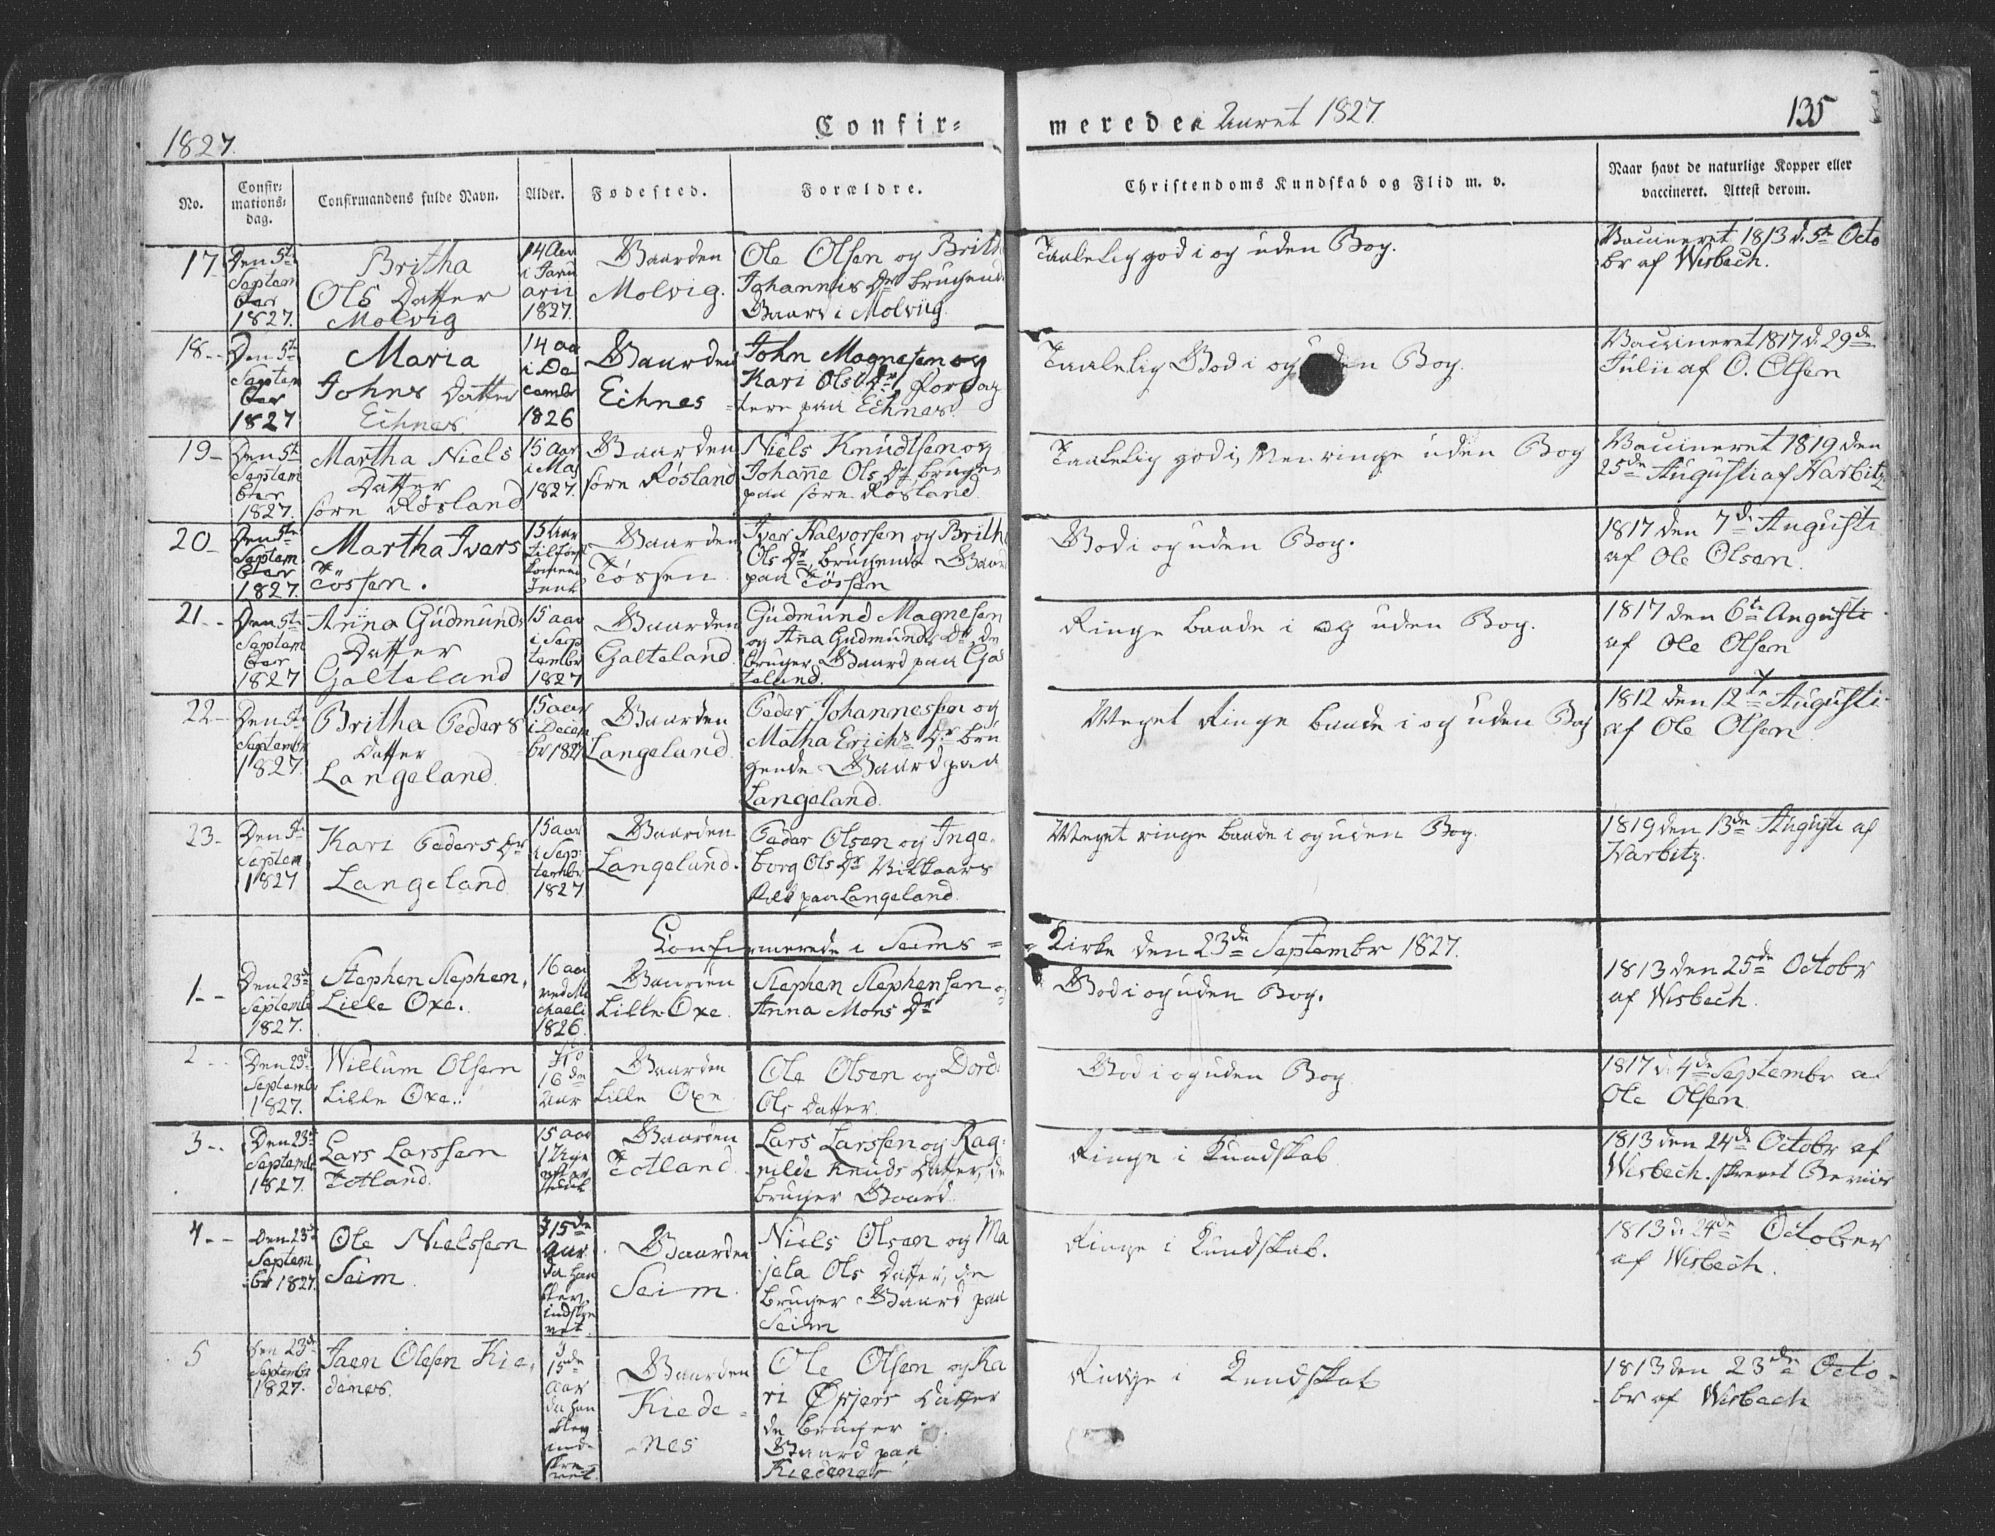 1827.
Confir=
meredei Aaret 1827.
135
No.
Confir-
mations-
dag.
Confirmandens fulde Navn.
Alder.
Fødested.
Forældre.
Christendoms Kundskab og Flid m. v.
Naar havt de naturlige Kopper eller
vaccineret. Attest derom.
17
Den 5te
Septem
ber
1827.
Britha
Ols Datter
Molvig
14 Aar
i Janu
arii
1827.
Gaarden
Molvig.
Ole Olsen og Brith
Johannis Dr brugende
Gaard i Molviig.
Taalelig god i og uden Bog.
Vaccineret 1813 d. 5te Octo
br af Wisbech.
18--
Den 5te
Septem
ber
1827
Maria
Johns Datter
Eihnes
14 aar
i De
cembr
1826
Gaarden
Eihnes
John Magnesen og
Kari Ols Dr
tere paa Eihnes.
Taalelig God i og uden Bog.
Vaccineret 1817 d. 29de
Julii af O. Olsen
19-
Den 5te
Septem
ber
1827.
Martha Niels
Datter
søre Røsland
15 Aar
i Maj
1827.
Gaarden
søre Røsland
Niels Knudtsen og
Johanne Ols Dr bruger
paa søre Røsland.
Taalelig god i, Men ringe uden Bog
Vaccineret 1819 den
25de Augusti af Harbitz
20-
Den 5te
Septem
ber
1827.
Martha Ivers
Tössen.
15 Aar
Gaarden
Tössen
Iver Halvorsen og Brith
Ols Dr, brugende Gaard
paa Tössen
God i og uden Bog.
1817 den 7de Augusti
af Ole Olsen.
21--
Den 5te
Septem
ber
1827
Anna Gudmunds
Datter
Galteland
15 aar
i Sep
tembr
1827
Gaarden
Galteland.
Gudmund Magnesen
og Anna Gudmunds Dr, de
bruger Gaard paa Gal
teland.
Ringe baade i og uden Bog.
1817 den 6te Augusti
af Ole Olsen
22--
Den 5te
Septembr
1827.
Britha Peders
Datter
Langeland.
15 aar
i Decem
br 1827
Gaarden
Langeland.
Peder Johannessen og
Matha Erichs Dr bru
gende Gaard paa
Langeland.
Meget Ringe baade i og uden Bog
1812 den 12te Augusti
af Ole Olsen.
23-
Den 5te
Septem
1827
Kari Peders Dr
Langeland.
15 aar
i Sep
tembr
1827
Gaarden
Langeland.
Peder Olsen og Inge
borg Ols Dr Vilkaars
Folk paa Langeland.
Meget ringe baade i og uden Bog.
1819 den 13de Augusti af
Harbitz.
Confirmerede i Seims =
Kirke den 23de Septembr 1827.
1--
Den 23de
Septembr
1827.
Stephen Stephen,
Lille Oxe.
16 aar
ved Mi
chaeli
1826.
Gaarden
Lille Oxe.
Stephen Stephensen og
Anna Mons Dr
God i og uden Bog.
1813 den 25de Octobr
af Wisbech.
2--
Den 23de
Septembr
1827.
Willum Olsen
Lille Oxe.
16de
Aar
Gaarden
Lille Oxe
Ole Olsen og Dord
Ols Datter.
God i og uden Bog
1817 d. 4de Septembr af
Ole Olsen.
3--
Den 23de
Septembr
1827.
Lars Larssen
Totland.
15 aar
1 Uge
efter
Gaarden
Totland.
Lars Larssen og Rag-
nilde Knuds Datter, de
bruger Gaard.
Ringe i Kundskab
1813 den 24de Octobr af
Wisbech.
4--
Den 23de
Septem
br 1827.
Ole Nielssen
Seim.
I 15de
Aar
da han
blev
indskre
vet
Gaarden
Seim.
Niels Olsen og Ma
jela Ols Datter, de
bruger Gaard paa
Seim
Ringe i Kundskab.
1813 d. 24de October
af Wisbech.
5
Den 23de
Septembr
1827.
Jaen Olesen Kie-
denes.
I
15de
Aar
da han
blev
ind
skre
vet
Gaarden
Kiede-
nes
Ole Olsen og Ka
ri Øxjers Datter
de bruger
Gaard paa
Kiedenes
Ringe i Kundskab
1813 den 23de Octo-
br af Wisbech